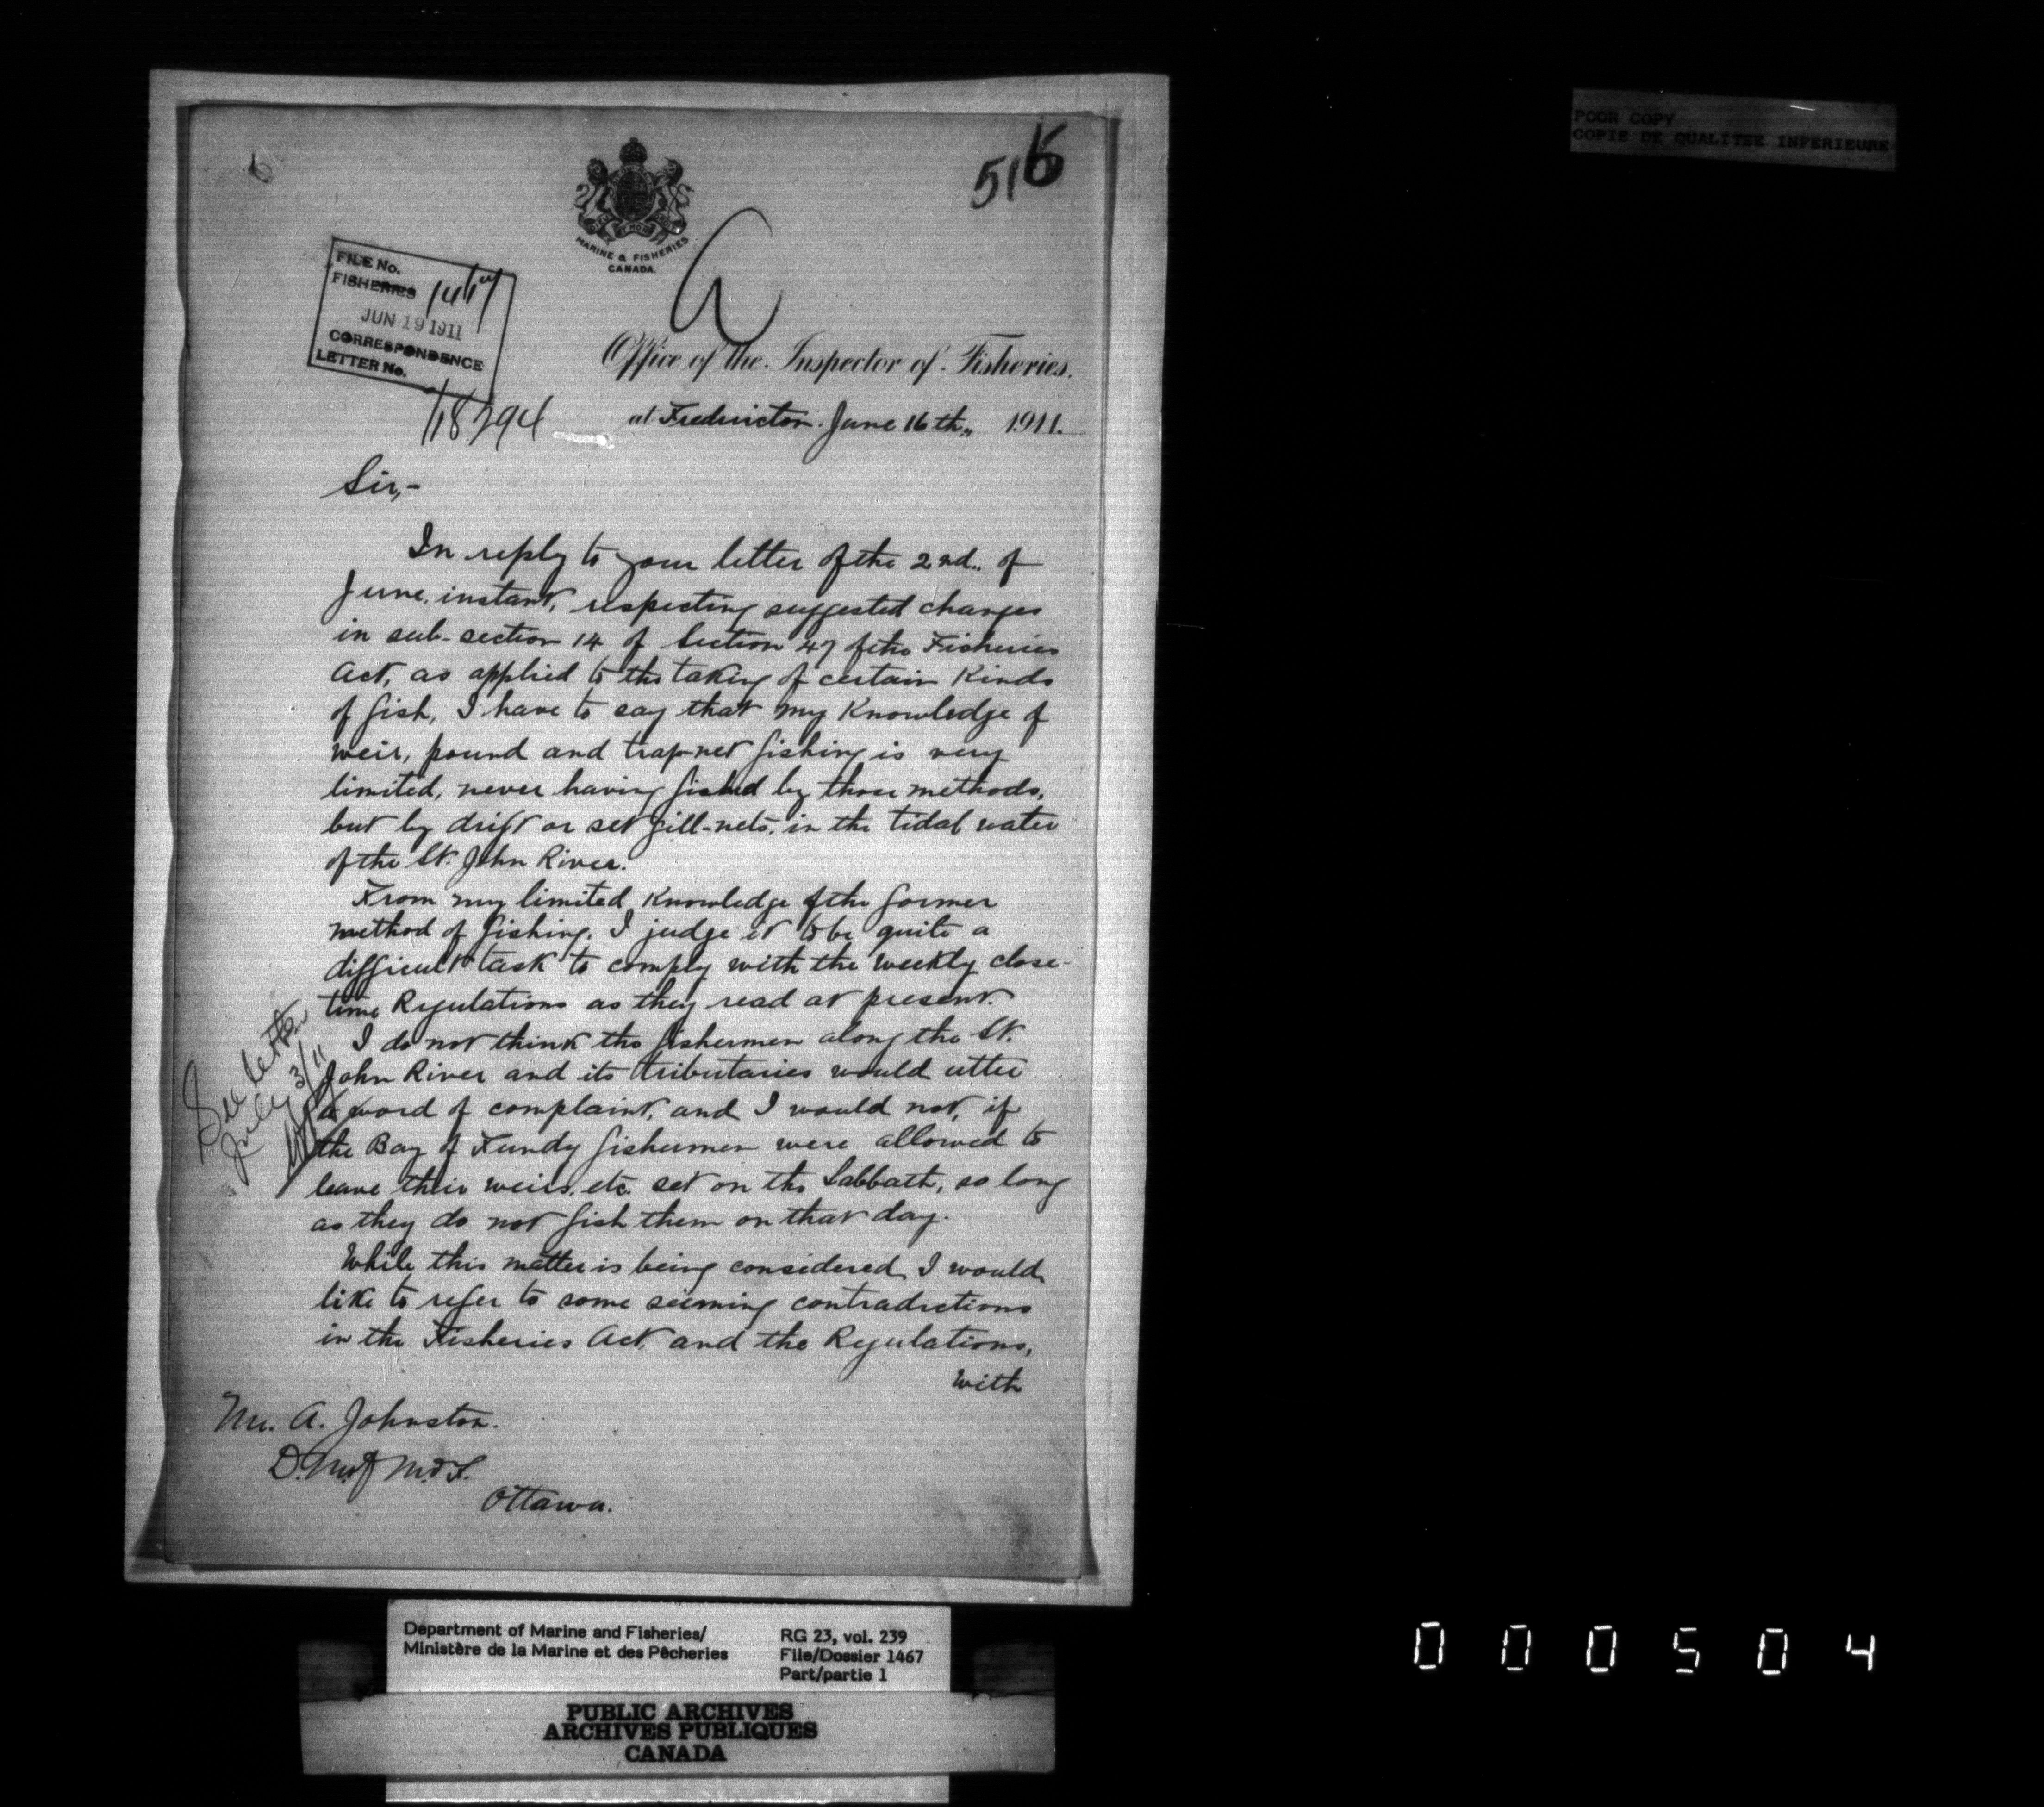 POOR COPY
COPIE DE QUALITEE INFERIEURE
515
MARINE & FISHERIES
CANADA.
FILE No.
FISHERIES
JUN 19 1911
CORRESPONDENCE
LETTER No.
118294
Office of the Inspector of Fisheries.
at Fredericton. June 16th,, 1911.
Sir,-
In reply to your letter of the 2nd,, of
June, instant, respecting suggested changes
in sub-section 14 of Section 47 of the Fisheries
Act, as applied to the taking of certain Kinds
of fish, I have to say that my Knowledge of
weir, pound and trap-net fishing is very
limited, never having fished by those methods,
but by drift or set gill-nets, in the tidal water
of the St. John River.
From my limited Knowledge of the former
method of fishing, I judge it to be quite a
difficult task to comply with the weekly close-
time Regulations as they read at present.
I do not think the fishermen along the St.
John River and its tributaries would utter
a word of complaint, and I would not, if
the Bay of Fundy fishermen were allowed to
leave their weirs, etc. set on the Sabbath, so long
as they do not fish them on that day.
While this matter is being considered, I would
like to refer to some seeming contradictions
in the Fisheries Act, and the Regulations,
with
See letter
July 3/11
Mr. A. Johnston.
D. M. of M. & F.
Ottawa.
Department of Marine and Fisheries/
Ministère de la Marine et des Pêcheries
RG 23, vol. 239
File/Dossier 1467
Part/partie 1
PUBLIC ARCHIVES
ARCHIVES PUBLIQUES
CANADA
000504